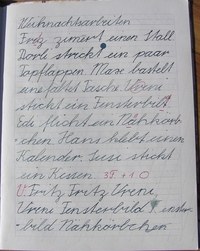 Weihnachtsarbeiten
Fritz zimert einen Stall
Dorli strickt ein paar
Topflappen Maxe bastelt
eine Tasche Vreni
stickt ein Fensterbild
Edi flicht ein Nähkörb-
chen Hans klebt einen
Kalender. Susi stickt
ein Kissen 3F + 1 O
V. Fritz Fritz Vreni
Vreni Fensterbild Fenster-
bild Nähkörbchen